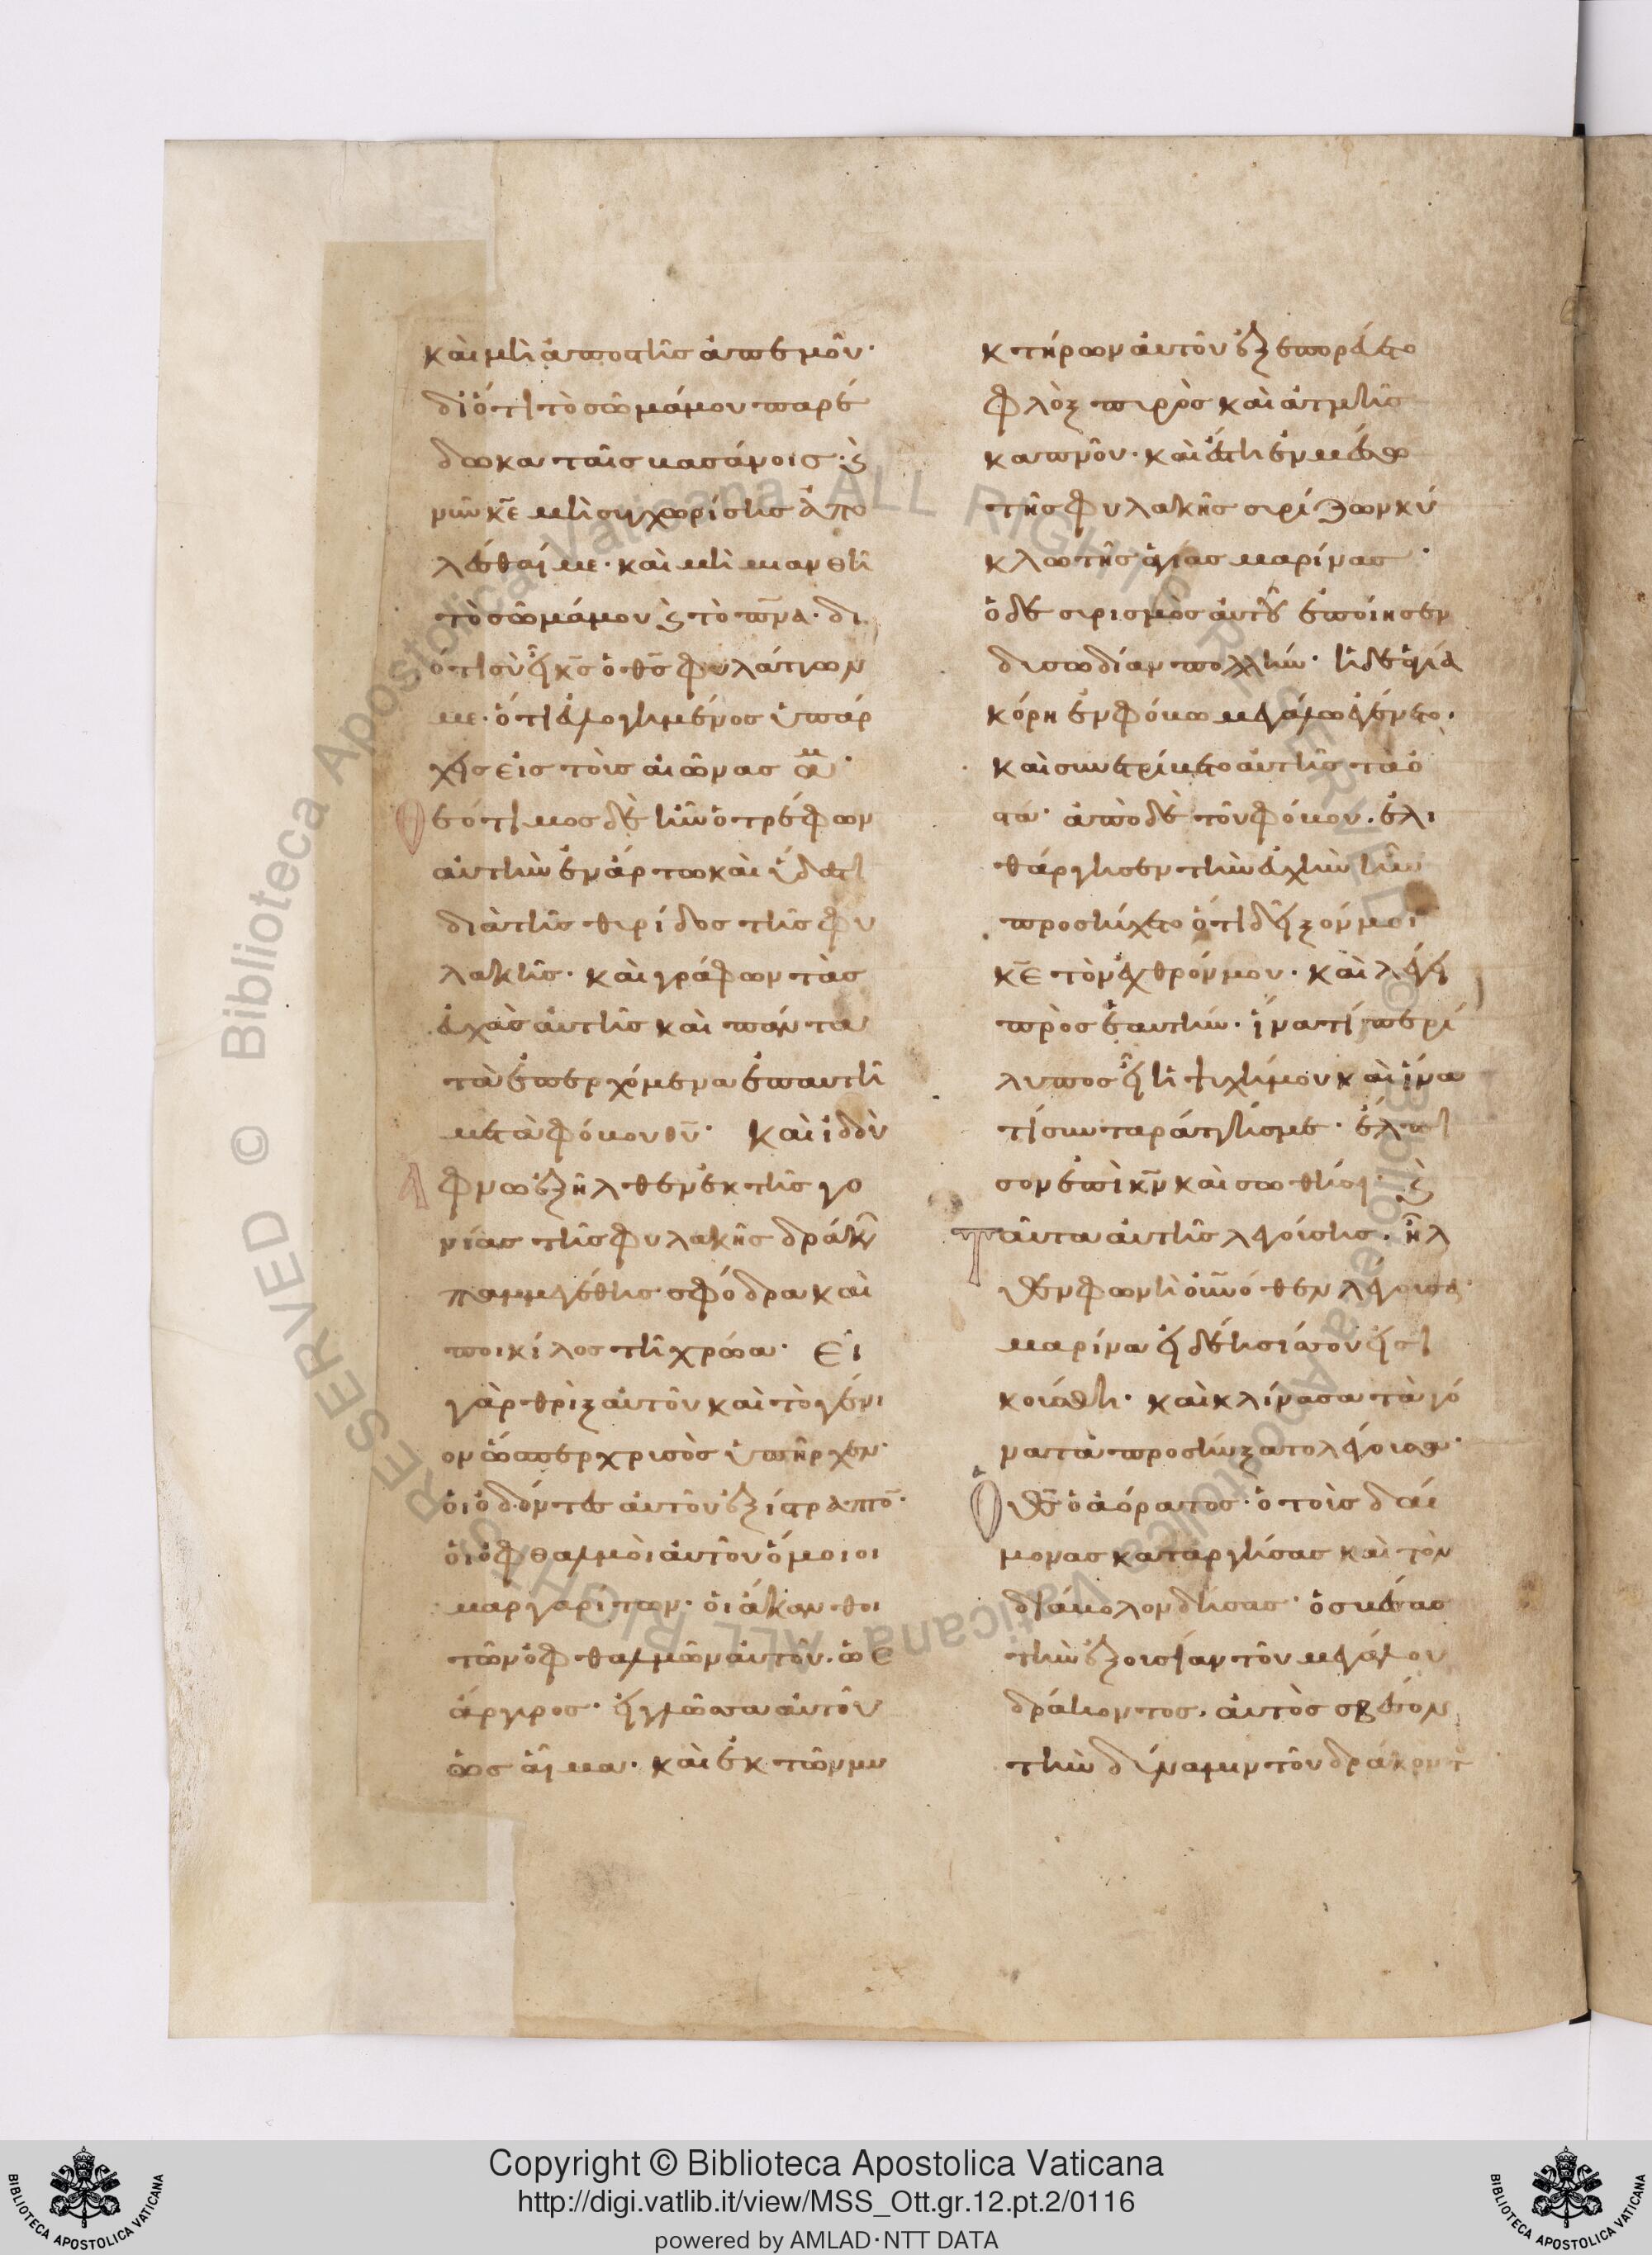 καὶ μὴ ἀποστῆς ἀπεμοῦ·
διότι τὸ σῶμά μου παρέ
δωκα ταῖς βασάνοις· ϗ
νῦν κ̅ε̅ μὴ συγχωρίσης ἀπο
λέσθαί με· καὶ μὴ μιανθῆ
τὸ σῶμά μου ϗ τὸ π̅ν̅α̅· δι
ότι σὺ εἶ κ̅ς̅ ὁ θ̅ς̅ φυλάττων
με· ὅτι εὐλογημένος ὑπάρ
χεις εἰς τοὺς αἰῶνας ἀμ·
Θεότιμος δὲ ἦν ὁ τρέφων
αὐτὴν ἐν ἄρτω καὶ ὕδατι
διὰ τῆς θυρίδος τῆς φυ
λακῆς· καὶ γράφων τὰς
εὐχὰς αὐτῆς καὶ πάντα
τὰ ἐπερχόμενα ἐπαυτῆ
μετὰ φόβου θ̅υ̅· Καὶ ἰδοὺ
Ἄφνω ἐξῆλθεν ἐκ τῆς γο
νίας τῆς φυλακῆς δράκων
παμμεγέθης σφόδρα καὶ
ποικίλος τῆ χρώα· Εἱ
γὰρ θρὶξ αὐτοῦ καὶ τὸ γένι
ον ὥσπερ χρισὸς ὑπῆρχεν·
οἱ ὀδόντες αὐτοῦ ἐξίστραπτον·
οἱ ὀφθαλμοὶ αὐτοῦ ὅμοιοι
μαργαρίτων· οἱ ἄκανθοι
τῶν ὀφθαλμῶν αὐτοῦ. ὡς
ἄργυρος· εἱ γλῶσσα αὐτοῦ
ὡς αἷμα· καὶ ἐκ τῶν μυ
κτήρων αὐτοῦ ἐξεπορεύετο
φλὸξ πυρὸς καὶ ἀτμὴς
καπνοῦ· καὶ ἔστι ἐν μέσω
τῆς φυλακῆς συρίζων κύ
κλω τῆς ἁγίας μαρίνας·
ὁ δὲ συρισμὸς αὐτοῦ ἐποίησεν
δυσωδίαν πολλήν· ἡ δὲ ἁγία
κόρη ἐν φόβω μεγάλω ἐγένετο.
καὶ συνετρίβετο αὐτῆς τὰ ὀ
στά· ἀπὸ δὲ τοῦ φόβου. ἐλι
θάργησεν τὴν εὐχὴν ἣν
προσηύχετο ὅτι δεῖξόν μοι
κ̅ε̅ τὸν ἐχθρόν μου· καὶ λέγει
πρὸς ἑαυτήν· ἵνα τί περί
λυπος εἶ ἡ ψυχή μου καὶ ἵνα
τί συνταράσσης με· ἔλπι
σον ἐπὶ κ̅ν̅ καὶ σωθήσει· ϗ
Ταῦτα αὐτῆς λεγούσης. ἦλ
θεν φωνὴ οὐ̅ν̅όθεν λέγουσα·
μαρίνα εἰ δέησίς σου εἰση
κούσθη· καὶ κλίνασα τὰ γό
νατα προσηύξατο λέγουσα·
Ὁ θ̅ς̅ ὁ ἀόρατος· ὁ τοὺς δαί
μονας καταργήσας καὶ τὸν
διάβολον δήσας· ὁ σβέσας
τὴν ἐξουσίαν τοῦ μεγάλου
δράκοντος. αὐτὸς σβέσον
τὴν δύναμιν τοῦ δράκοντος
Copyright © Biblioteca Apostolica Vaticana
http://digi.vatlib.it/view/MSS_Ott.gr.12.pt.2/0116
powered by AMLAD·NTT DATA
BIBLIOTECA APOSTOLICA VATICANA
BIBLIOTECA APOSTOLICA VATICANA
© Biblioteca Apostolica Vaticana ALL RIGHTS RESERVED
© Biblioteca Apostolica Vaticana ALL RIGHTS RESERVED